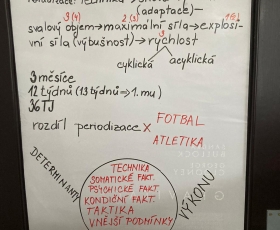 (adaptace)–
3(4) 2(3)
svalový objem→maximální síla→explosi-
vní síla (výbušnost)→rychlost
cyklická acyklická
3 měsíce
12 týdnů (13 týdnů→1. mu)
36TJ
rozdíl periodizace × FOTBAL
ATLETIKA
DETERMINANTY
TECHNIKA
SOMATICKÉ FAKT.
PSYCHICKÉ FAKT.
KONDIČNÍ FAKT.
TAKTIKA
VNĚJŠÍ PODMÍNKY
VÝKONU